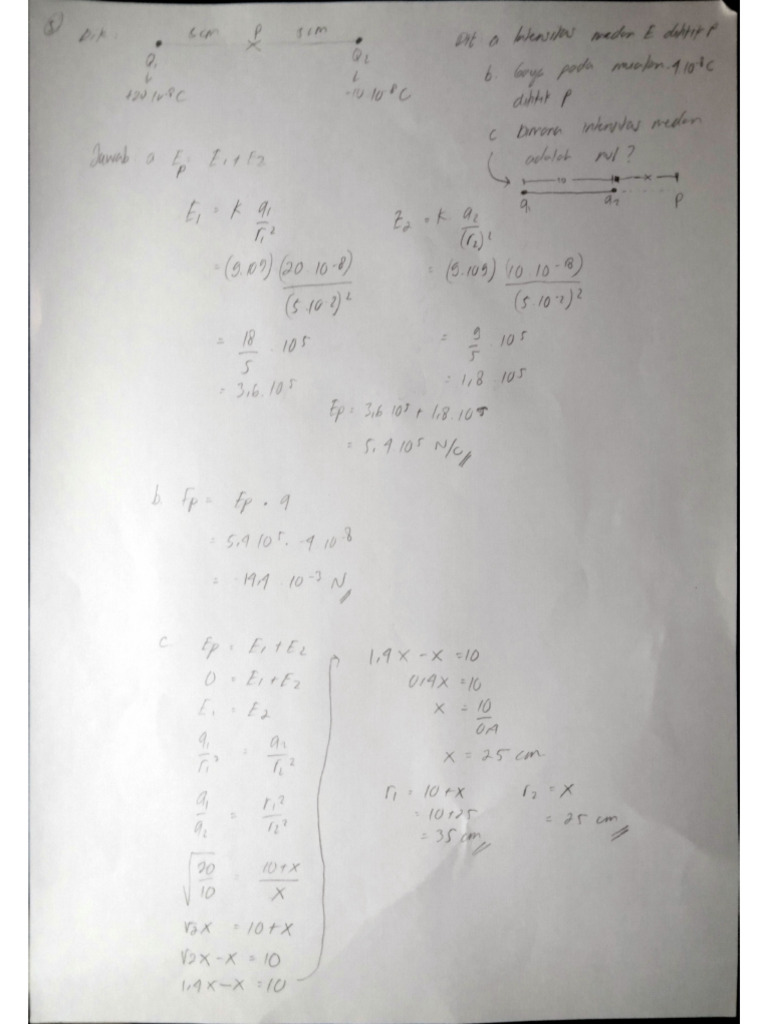 Dik:
5cm P 5cm
Q1 Q2
+20.10-8C -10.10-8C
Dit. a Intensitas medan E dititik P
b. Gaya pada muatan -4 10-8C
dititik P
c Dimana intensitas medan
adalah nol?
10 x
q1 q2 P
Jawab. a Ep = E1 + E2
E1 = K q1/r1²
= (9.109) (20.10-8)/(5.10-2)²
= 18/5 . 105
= 3,6.105
E2 = K q2/(r2)²
= (9.109) (10 10-8)/(5.10-2)²
= 9/5 . 105
= 1,8.105
Ep = 3,6 105 + 1,8.105
= 5,4 105 N/C
b. Fp = Ep . q
= 5,4 105 . -4 10-8
10-3 N
c. Ep = E1 + E2
0 = E1 + E2
E1 = E2
q1/r1² = q2/r2²
q1/q2 = r1²/r2²
√20/10 = 10+x/x
√2x = 10+x
√2x - x = 10
1,4x - x = 10
1,4x - x = 10
0,4x = 10
x = 10/0,4
x = 25 cm
r1 = 10+x
= 10+25
= 35 cm
r2 = x
= 25 cm